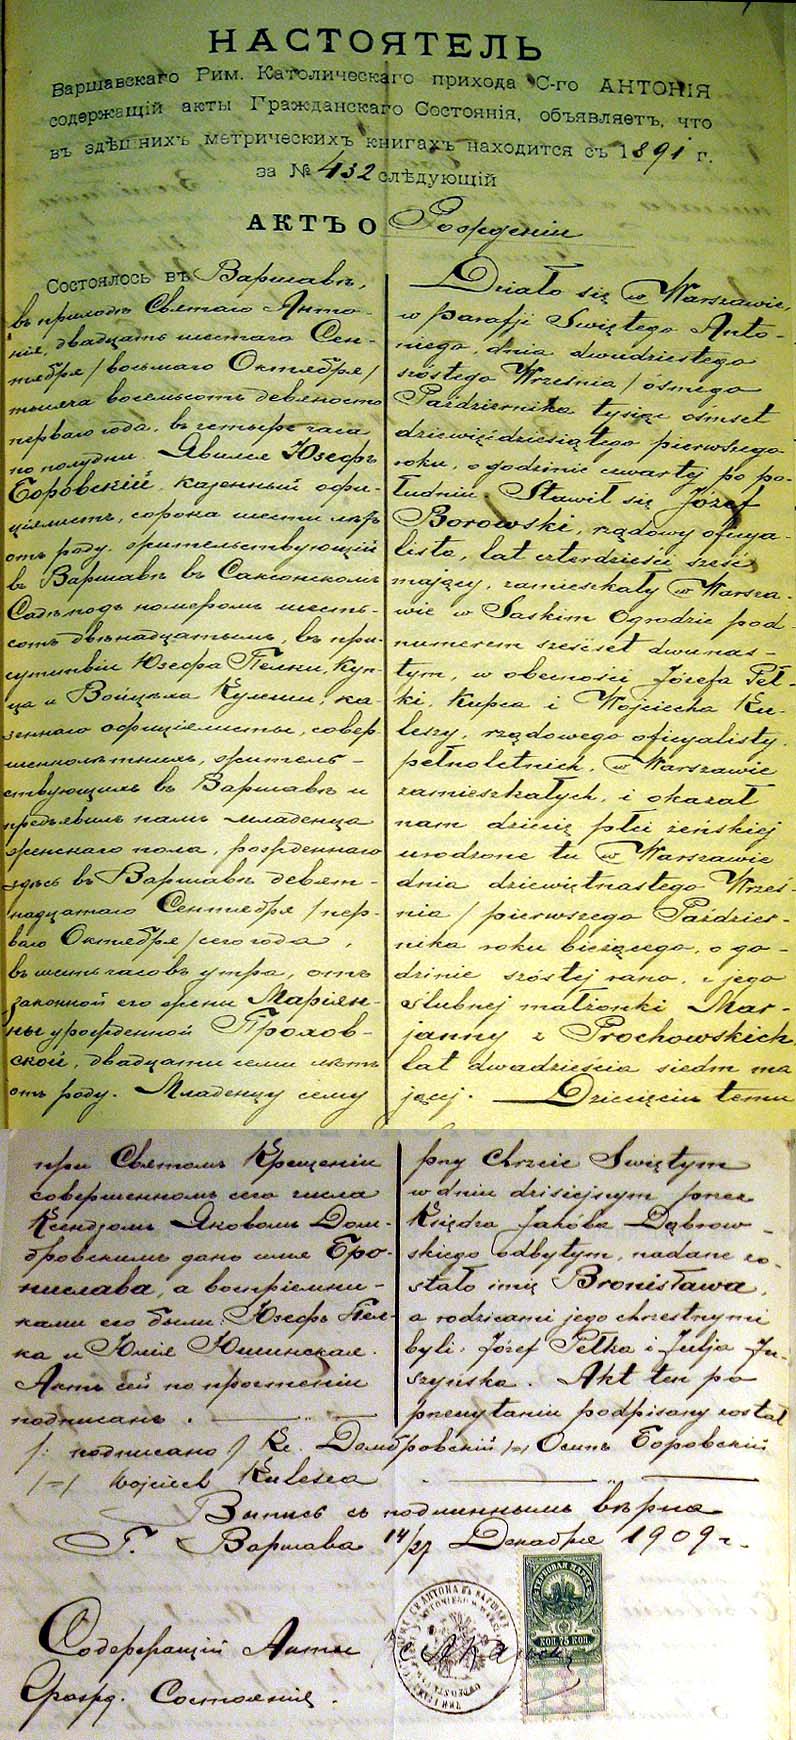 НАСТОЯТЕЛЬ
Варшавскаго Рим. Католическаго прихода С-го АНТОНІЯ
содержащій акты Гражданскаго Состоянія, объявляетъ, что
въ здѣшнихъ метрическихъ книгахъ находится съ 1891 г.
за № 432 слѣдующій
АКТЪ О Рожденіи
Состоялось въ Варшавѣ,
въ приходѣ Святаго Анто-
нія, двадцать шестаго Сен-
тября / восьмаго Октября /
тысяча восемьсотъ девяносто
перваго года, въ четыре часа
по полудни. Явился Юзефъ
Боровскій, казенный офи-
ціялистъ, сорока шести лѣтъ
отъ роду, жительствующій
въ Варшавѣ въ Саксонскомъ
Саду подъ номеромъ шесть-
сотъ двѣнадцатымъ, въ при-
сутствіи Юзефа Пелки, Куп-
ца и Войцѣха Кулеши, ка-
зеннаго офиціялисты, совер-
шеннолѣтнихъ, житель-
ствующихъ въ Варшавѣ и
предъявилъ намъ младенца
женскаго пола, рожденнаго
здѣсь въ Варшавѣ девят-
надцатаго Сентября / пер-
ваго Октября / сего года,
въ шесть часовъ утра, отъ
законной его жены Маріян-
ны урожденной Прохов-
ской, двадцати семи лѣтъ
отъ роду. Младенцу сему
при Святомъ Крещеніи
совершенномъ сего числа
Ксендзомъ Яковомъ Дом-
бровскимъ дано имя Бро-
нислава, а воспріемни-
ками его были: Юзефъ Пел-
ка и Юлія Юшинская.
Актъ сей по прочтеніи
подписанъ.
Działo się w Warszawie,
w parafji Świętego Anto-
niego, dnia dwudziestego
szóstego Września / ósmego
Października tysiąc ośmset
dziewięćdziesiątego pierwszego
roku, o godzinie czwartej po po-
łudniu. Stawił się Józef
Borowski, rządowy oficya-
lista, lat czterdzieści sześć
mający, zamieszkały w Warsza-
wie w Saskim Ogrodzie pod
numerem sześćset dwunas-
tym, w obecności Józefa Peł-
ki, Kupca i Wojciecha Ku-
leszy, rządowego oficyalisty,
pełnoletnich, w Warszawie
zamieszkałych, i okazał
nam dziecię płci żeńskiej
urodzone tu w Warszawie
dnia dziewiętnastego Wrześ-
nia / pierwszego Paździer-
nika roku bieżącego, o go-
dzinie szóstej rano, z jego
ślubnej małżonki Mar-
janny z Prochowskich,
lat dwadzieścia siedm ma
jącej. Dziecięciu temu
przy Chrzcie Świętym
w dniu dzisiejszym przez
Księdza Jakóba Dąbrow-
skiego odbytym, nadane zo-
stało imię Bronisława,
a rodzicami jego chrzestnymi
byli: Józef Pełka i Julja Ju-
szyńska. Akt ten po
przeczytaniu podpisany został
/: подписано / Кс. Домбровскій /-/ Осипъ Боровскій
/-/ Wojciech Kulesza
Выпись съ подлиннымъ вѣрна
Г. Варшава 14/27 Декабря 1909 г.
Содержащій Акты
Гражд. Состоянія.
ГЕРБОВАЯ МАРКА
КОП. 75 КОП.